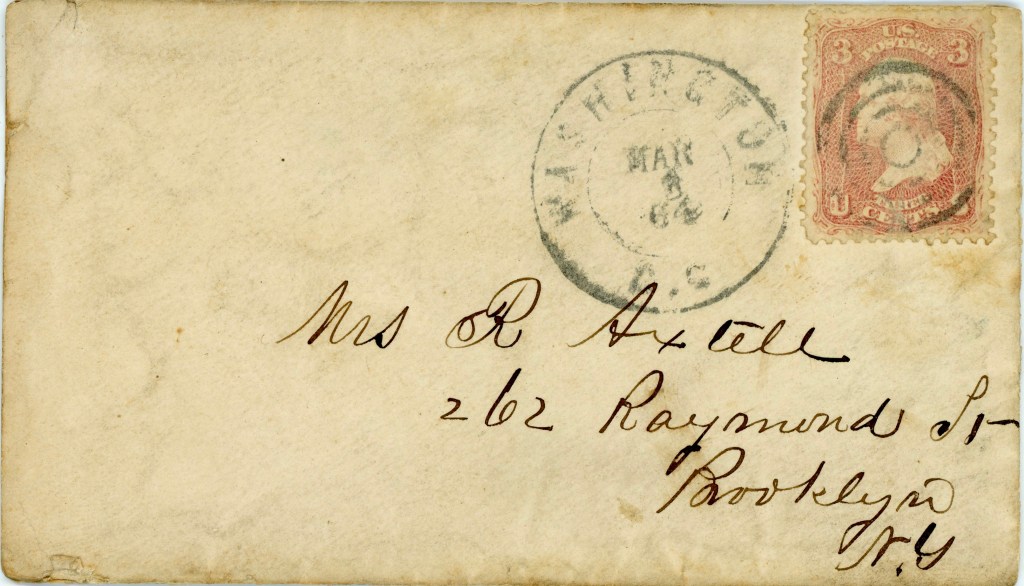 U.S.
POSTAGE
3 3
U THREE S
CENTS
WASHINGTON
MAR
64
D.C.
Mrs R Axtell
262 Raymond St
Brooklyn
N.Y